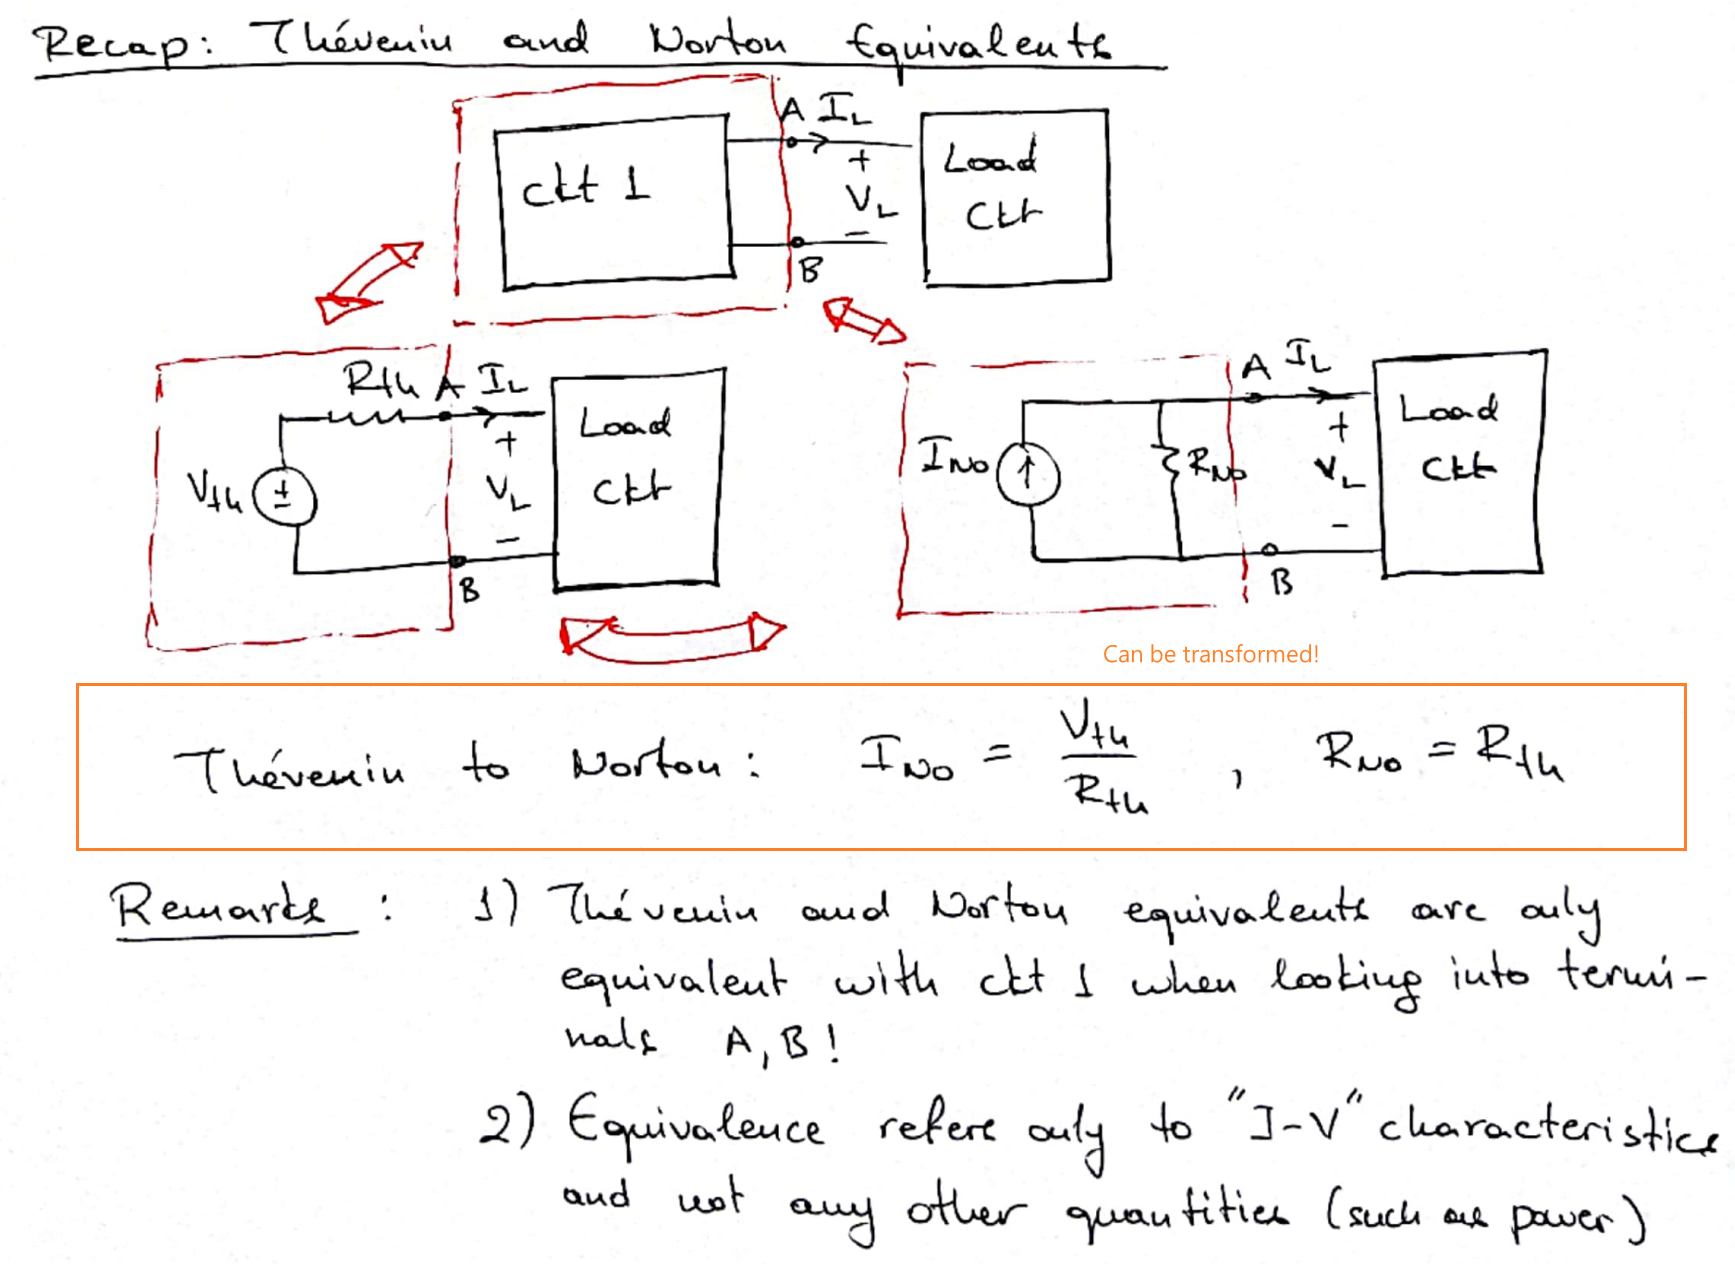 Recap: Thévenin and Norton Equivalents
A I_L
ckt 1
+
V_L
-
B
Load
Ckt
R_th A I_L
V_th
+
-
+
V_L
-
B
Load
Ckt
A I_L
I_No
R_No
+
V_L
-
B
Load
Ckt
Can be transformed!
Thévenin to Norton: I_No = V_th / R_th , R_No = R_th
Remarks : 1) Thévenin and Norton equivalents are only
equivalent with ckt 1 when looking into termi-
nals A, B!
2) Equivalence refers only to "I-V" characteristics
and not any other quantities (such as power)